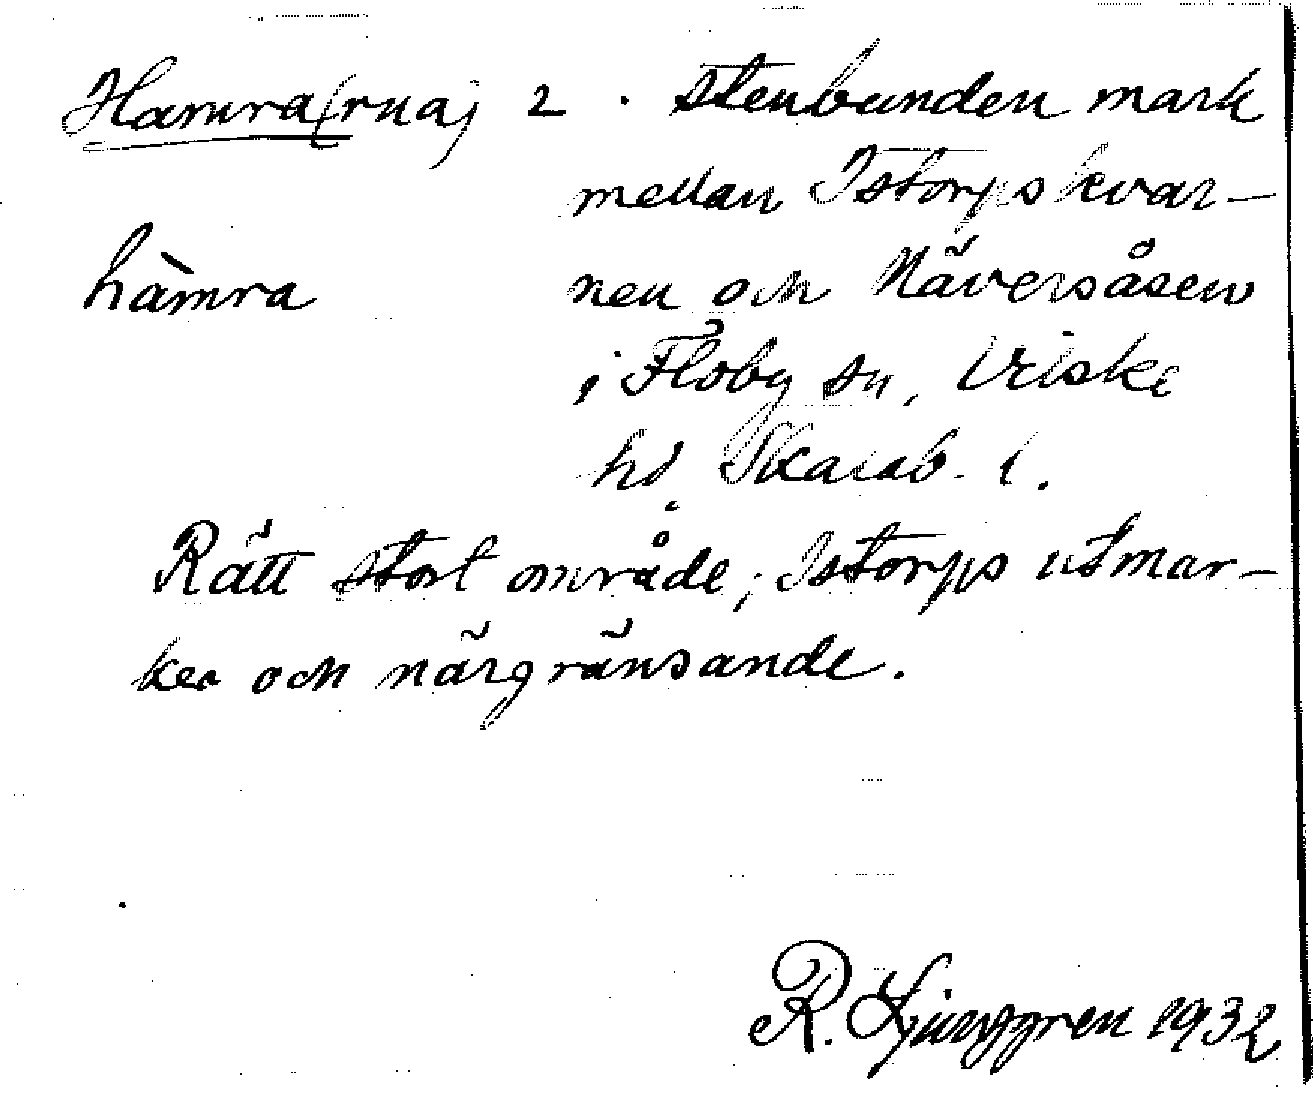 Hamra(rna) 2. stenbunden mark
mellan Istorpskvar-
hàmra nen och Näversåsen
i Floby sn, Vilske
hd. Skarab. l.
Rätt stort område, Istorps utmar-
ker och närgränsande.
R. Ljunggren 1932